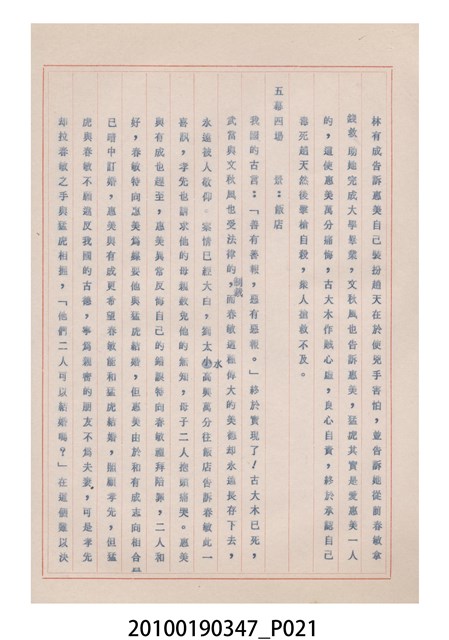 林有成告訴惠美自己裝扮趙天在於使兇手害怕，並告訴她從前春敏拿
錢救助她完成大學畢業，文秋風也告訴惠美，猛虎其實是愛惠美一人
的，這使惠美萬分痛悔，古大木作賊心虛，良心自責，終於承認自己
毒死趙天然後舉槍自殺，眾人搶救不及。
五幕四場　景：飯店
我國的古言：「善有善報，惡有惡報。」終於實現了！古大木已死，
武當與文秋風也受法律的制裁，而春敏這種偉大的美德却永遠長存下去，
永遠被人敬仰。案情已經大白，劉太小水高興萬分往飯店告訴春敏此一
喜訊，孝先也請求他的母親赦免他的無知，母子二人抱頭痛哭。惠美
與有成也趕至，惠美異常反悔自己的錯誤特向春敏道拜陪訴，二人和
好，春敏特向惠美解釋她與猛虎結婚，但惠美由於和有成志向相合
已暗中訂婚，惠美與有成更希望春敏能和猛虎結婚，照顧孝先，但猛
虎與春敏不願違反我國的古德，寧為親密的朋友不為夫妻，可是孝先
却拉春敏之手與猛虎相握，「他們二人可以結婚嗎？」在這個難以決
20100190347_P021